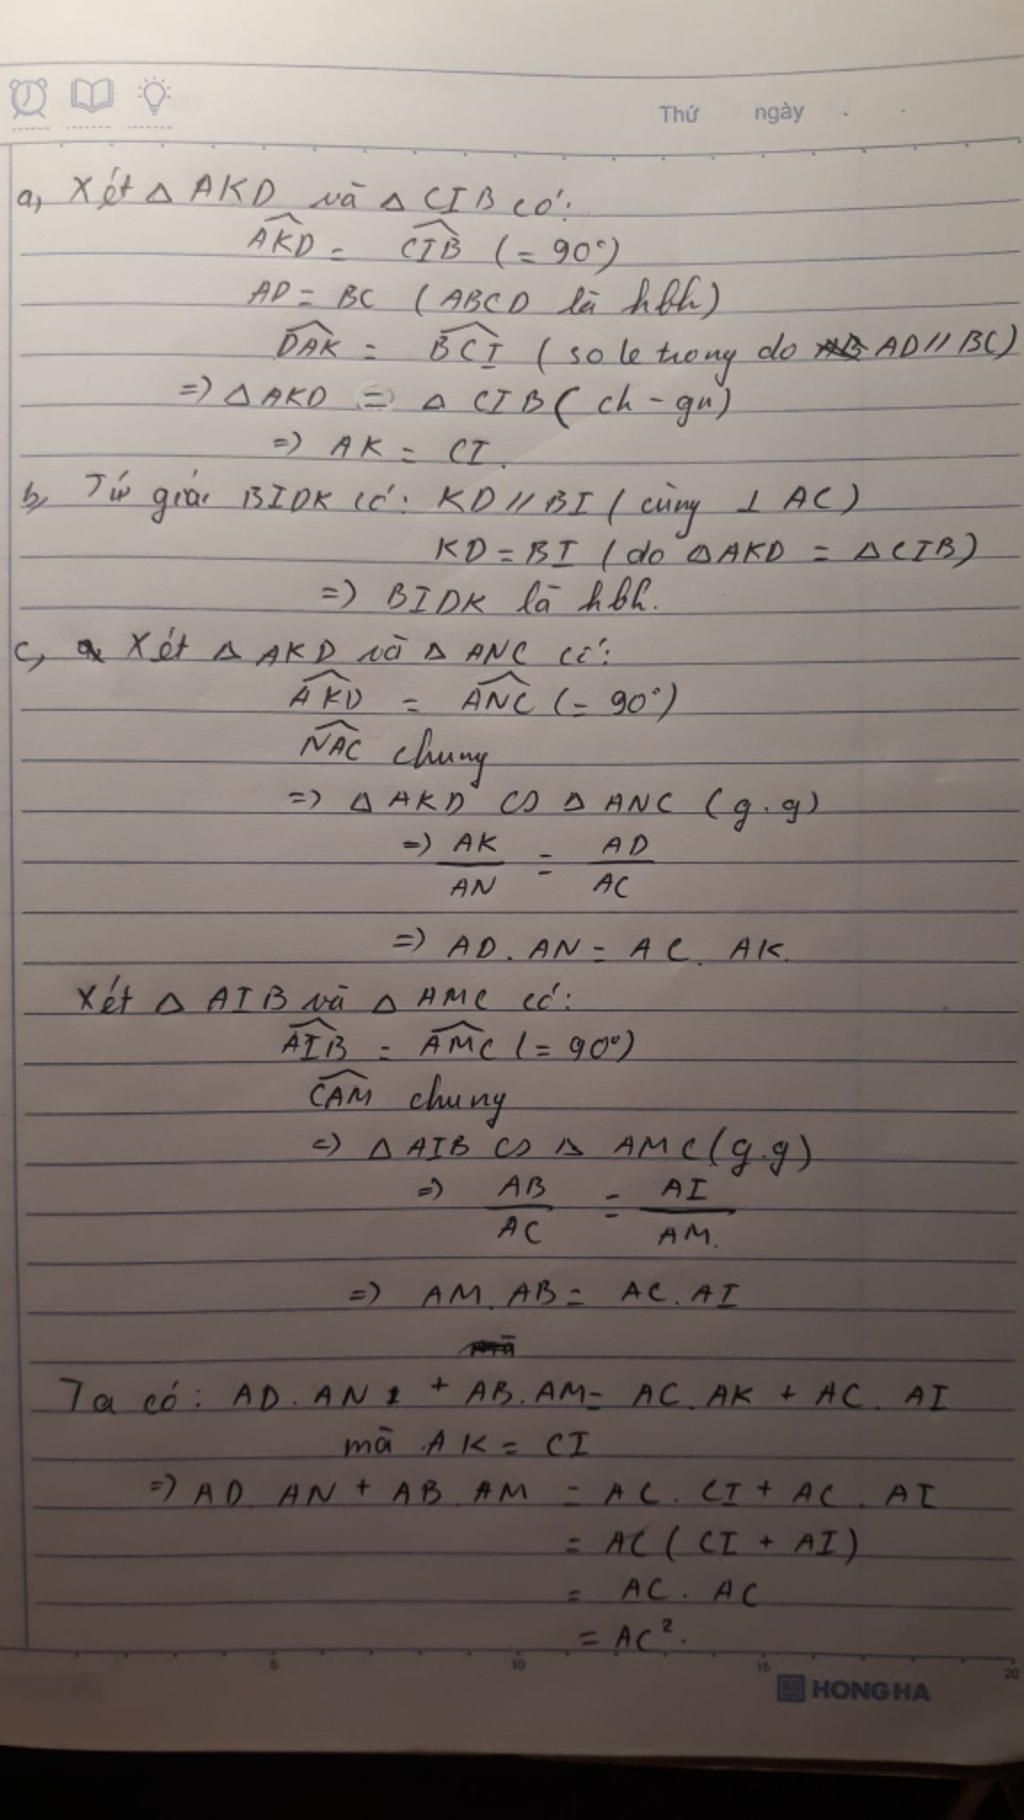 Thứ ngày
a, Xét △ AKD và △ CIB có:
∠AKD = ∠CIB (= 90°)
AD = BC (ABCD là hbh)
∠DAK = ∠BCI (so le trong do AD // BC)
=> △ AKD = △ CIB (ch - gn)
=> AK = CI.
b, Tứ giác BIDK có: KD // BI (cùng ⊥ AC)
KD = BI (do △AKD = △CIB)
=> BIDK là hbh.
c, Xét △ AKD và △ ANC có:
∠AKD = ∠ANC (= 90°)
∠NAC chung
=> △ AKD ∽ △ ANC (g.g)
=> AK/AN = AD/AC
=> AD. AN = AC. AK.
Xét △ AIB và △ AMC có:
∠AIB = ∠AMC (= 90°)
∠CAM chung
=> △ AIB ∽ △ AMC (g.g)
=> AB/AC = AI/AM.
=> AM. AB = AC. AI
Ta có: AD. AN + AB. AM = AC. AK + AC. AI
mà AK = CI
=> AD. AN + AB. AM = AC. CI + AC. AI
= AC (CI + AI)
= AC. AC
= AC².
5 10 15 20
HONG HA